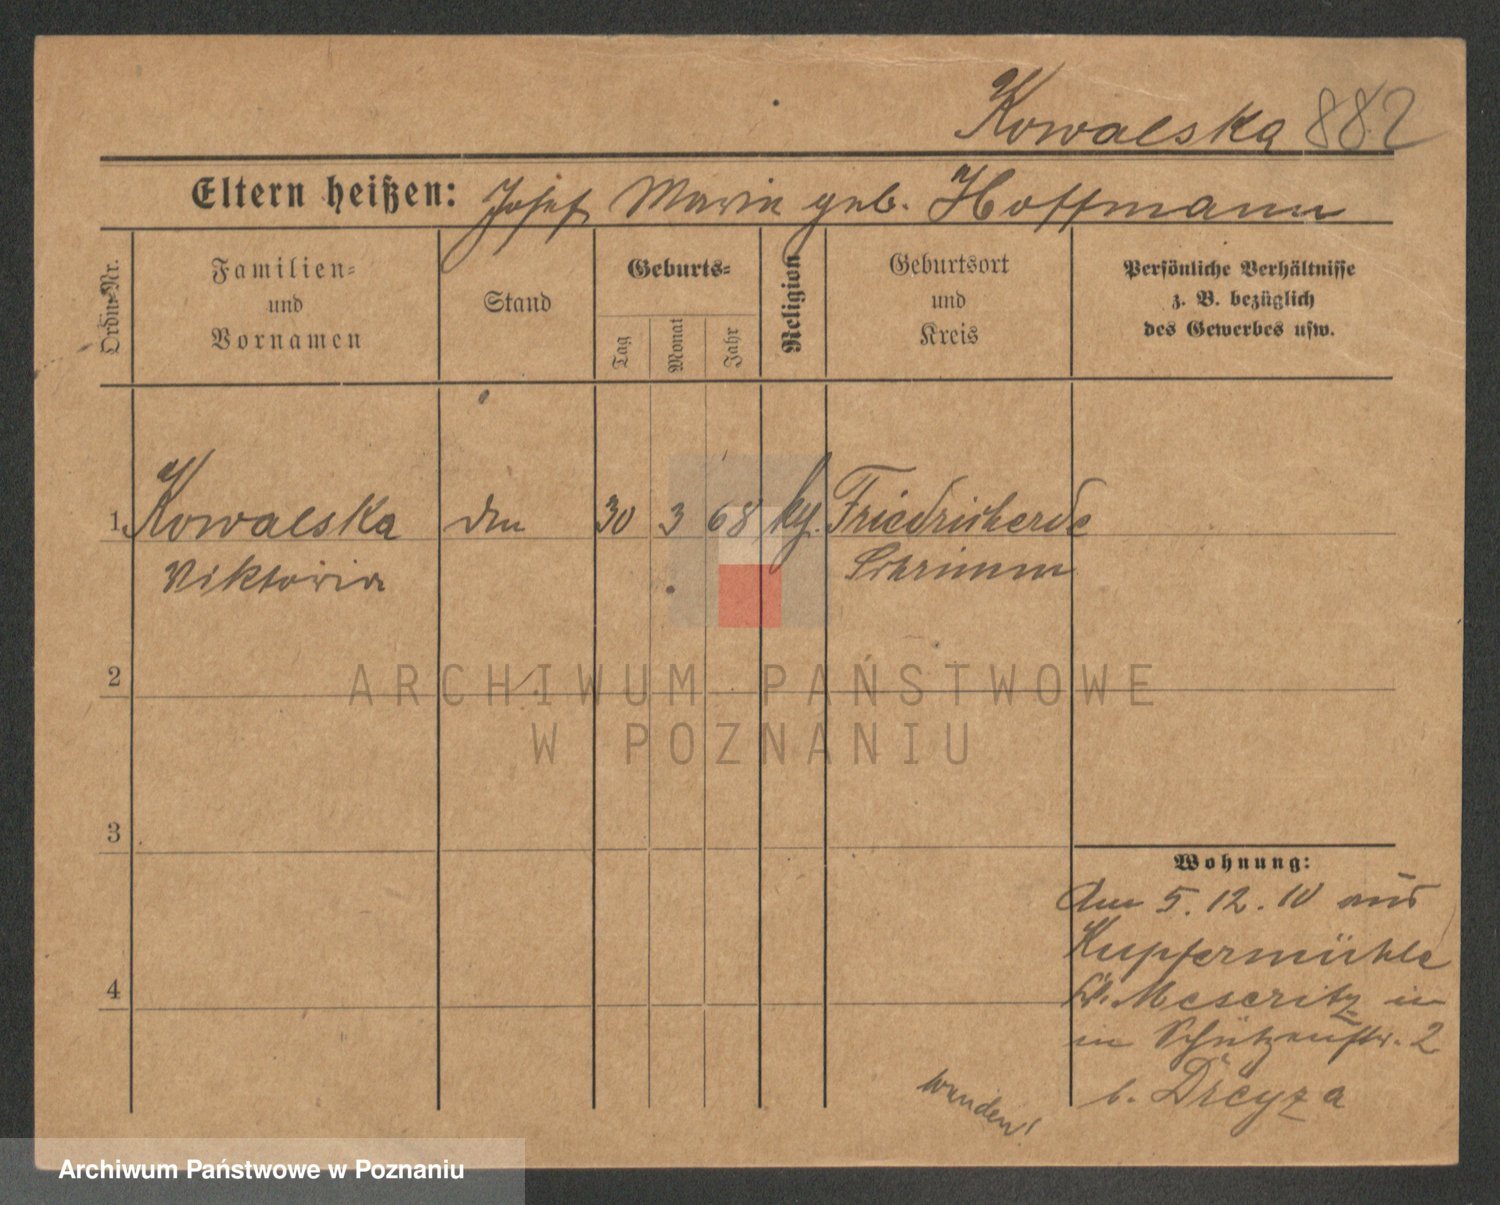 Kowalska 882
Eltern heißen: Josef Maria geb. Hoffmann
Ordn.-Nr.
Familien-
und
Vornamen
Stand
Geburts-
Tag
Monat
Jahr
Religion
Geburtsort
und
Kreis
Persönliche Verhältnisse
z. B. bezüglich
des Gewerbes usw.
1. Kowalska 30 3 68
Viktoria Schrimm
2
3
4
Wohnung:
Am 5.12.10 aus
Kupfermühle
Kr. Meseritz in
in Schützenstr. 2
b. Dreyza
wenden!
ARCHIWUM PAŃSTWOWE
W POZNANIU
Archiwum Państwowe w Poznaniu